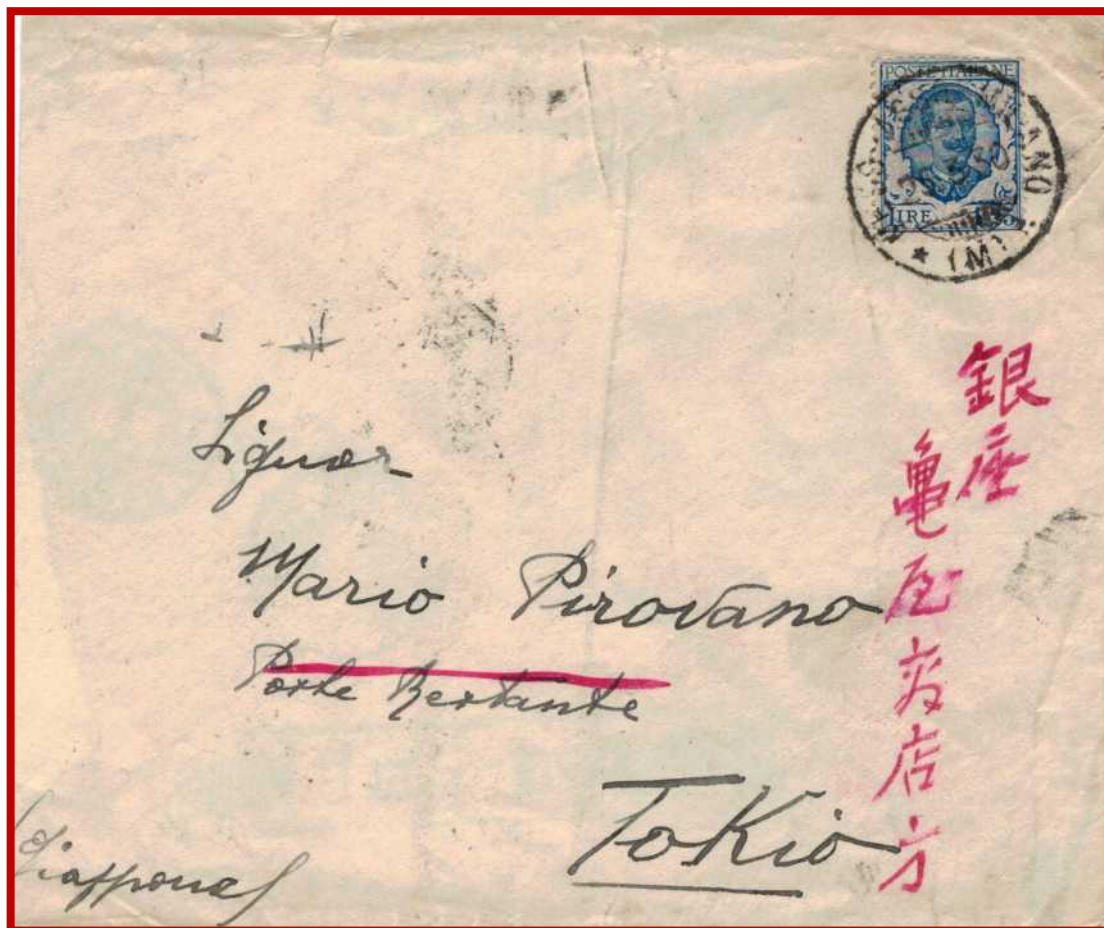 POSTE ITALIANE
LIRE
MILANO
(M)
Signor
Mario Pirovano
Poste Restante
Tokio
(Giappone)
銀座
亀屋商店方